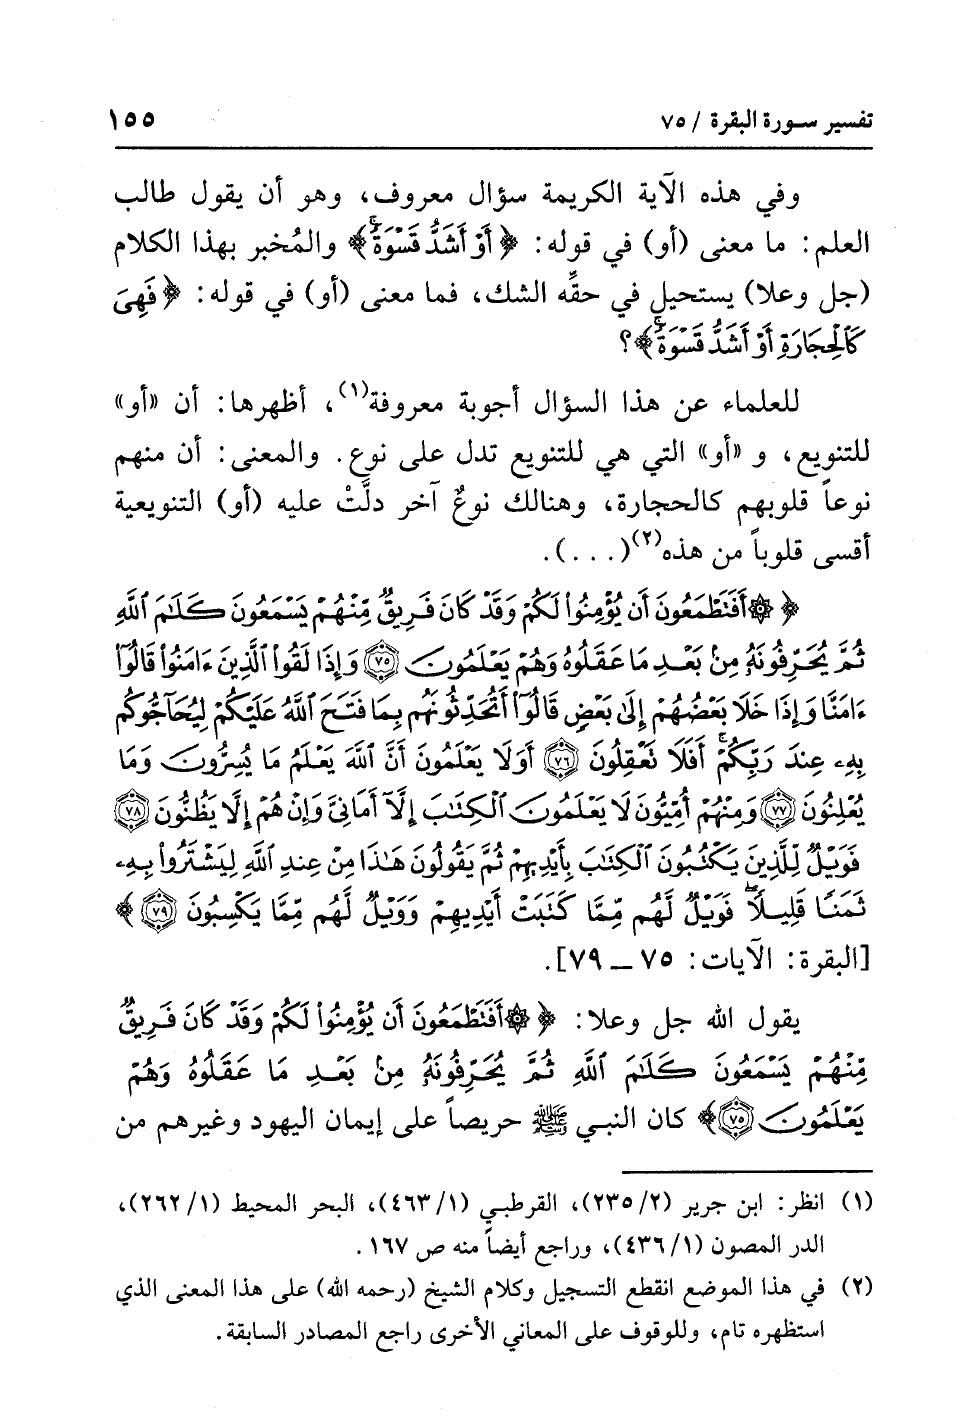 تفسير سورة البقرة / ٧٥ ١٥٥
وفي هذه الآية الكريمة سؤال معروف، وهو أن يقول طالب
العلم: ما معنى (أو) في قوله: ﴿أَوْ أَشَدُّ قَسْوَةً﴾ والمُخبر بهذا الكلام
(جل وعلا) يستحيل في حقِّه الشك، فما معنى (أو) في قوله: ﴿فَهِىَ
كَٱلْحِجَارَةِ أَوْ أَشَدُّ قَسْوَةً﴾؟
للعلماء عن هذا السؤال أجوبة معروفة(١)، أظهرها: أن «أو»
للتنويع، و «أو» التي هي للتنويع تدل على نوع. والمعنى: أن منهم
نوعاً قلوبهم كالحجارة، وهنالك نوعٌ آخر دلَّتْ عليه (أو) التنويعية
أقسى قلوباً من هذه(٢)(. . .).
﴿ ۞ أَفَتَطْمَعُونَ أَن يُؤْمِنُوا۟ لَكُمْ وَقَدْ كَانَ فَرِيقٌ مِّنْهُمْ يَسْمَعُونَ كَلَـٰمَ ٱللَّهِ
ثُمَّ يُحَرِّفُونَهُۥ مِنۢ بَعْدِ مَا عَقَلُوهُ وَهُمْ يَعْلَمُونَ ۝٧٥ وَإِذَا لَقُوا۟ ٱلَّذِينَ ءَامَنُوا۟ قَالُوٓا۟
ءَامَنَّا وَإِذَا خَلَا بَعْضُهُمْ إِلَىٰ بَعْضٍ قَالُوٓا۟ أَتُحَدِّثُونَهُم بِمَا فَتَحَ ٱللَّهُ عَلَيْكُمْ لِيُحَآجُّوكُم
بِهِۦ عِندَ رَبِّكُمْ ۚ أَفَلَا تَعْقِلُونَ ۝٧٦ أَوَلَا يَعْلَمُونَ أَنَّ ٱللَّهَ يَعْلَمُ مَا يُسِرُّونَ وَمَا
يُعْلِنُونَ ۝٧٧ وَمِنْهُمْ أُمِّيُّونَ لَا يَعْلَمُونَ ٱلْكِتَـٰبَ إِلَّآ أَمَانِىَّ وَإِنْ هُمْ إِلَّا يَظُنُّونَ ۝٧٨
فَوَيْلٌ لِّلَّذِينَ يَكْتُبُونَ ٱلْكِتَـٰبَ بِأَيْدِيهِمْ ثُمَّ يَقُولُونَ هَـٰذَا مِنْ عِندِ ٱللَّهِ لِيَشْتَرُوا۟ بِهِۦ
ثَمَنًا قَلِيلًا ۖ فَوَيْلٌ لَّهُم مِّمَّا كَتَبَتْ أَيْدِيهِمْ وَوَيْلٌ لَّهُم مِّمَّا يَكْسِبُونَ ۝٧٩ ﴾
[البقرة: الآيات: ٧٥ ــ ٧٩].
يقول الله جل وعلا: ﴿ ۞ أَفَتَطْمَعُونَ أَن يُؤْمِنُوا۟ لَكُمْ وَقَدْ كَانَ فَرِيقٌ
مِّنْهُمْ يَسْمَعُونَ كَلَـٰمَ ٱللَّهِ ثُمَّ يُحَرِّفُونَهُۥ مِنۢ بَعْدِ مَا عَقَلُوهُ وَهُمْ
يَعْلَمُونَ ۝٧٥﴾ كان النبي ﷺ حريصاً على إيمان اليهود وغيرهم من
(١) انظر: ابن جرير (٢/ ٢٣٥)، القرطبي (١/ ٤٦٣)، البحر المحيط (١/ ٢٦٢)،
الدر المصون (١/ ٤٣٦)، وراجع أيضاً منه ص ١٦٧.
(٢) في هذا الموضع انقطع التسجيل وكلام الشيخ (رحمه الله) على هذا المعنى الذي
استظهره تام، وللوقوف على المعاني الأخرى راجع المصادر السابقة.